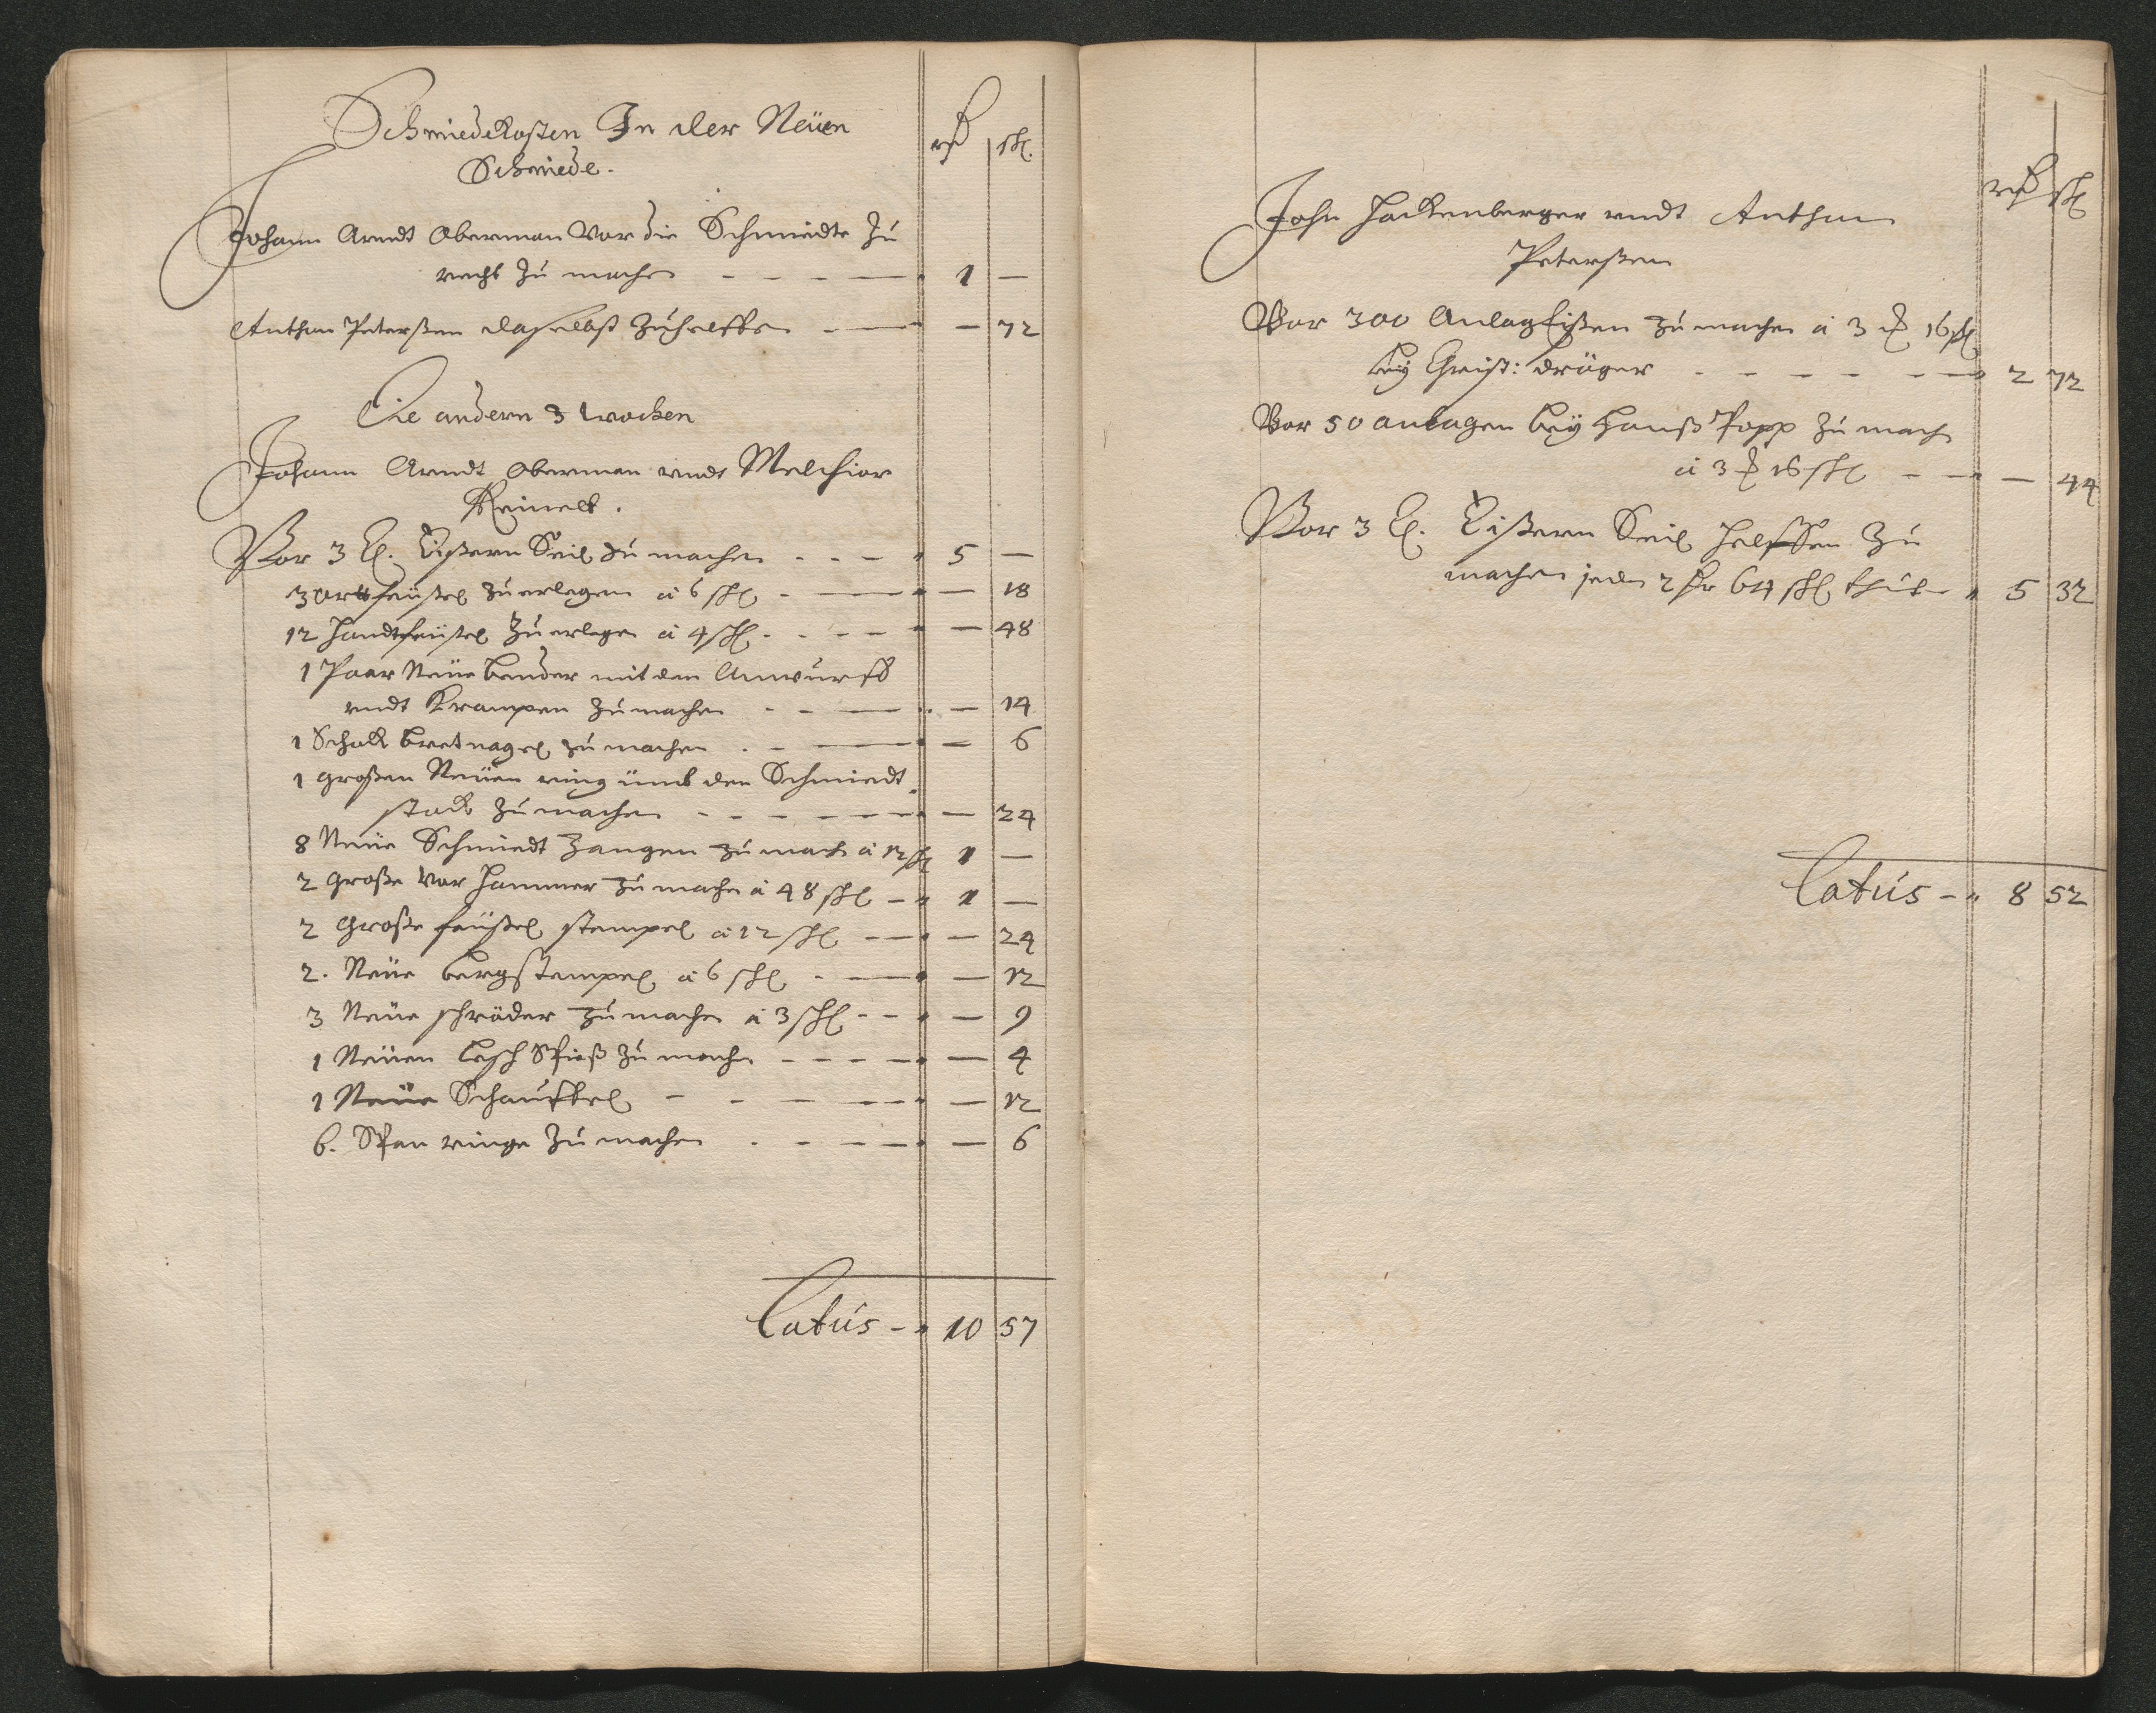 Schmiedekosten In der Neüen
Schmiede.
rß sß.
Johann Arndt Oberman Vor die Schmiedte zu
recht zu machen - - - - 1 —
Anthon Peterßen daselbst zuhelffen - — 72
Die andern 3 wochen
Johann Arndt Oberman undt Melchior
Reinelt.
Vor 3 Eißern Seil zu machen - - - 5 —
3 ortfeüstel zu erlegen á 6 sß - — 18
12 handtfeüstel zu erlegen á 4 sß - - - — 48
1 Paar Neüe bender mit den Anwurff
undt Krampen zumachen - - — 14
1 Schock bretnagel zu machen - - — 6
1 großen Neüen ring umb den Schmiedt
stock zumachen - - - - — 24
8 Neüe Schmiedt Zangen zumach á 12 sß 1 —
2 große Vor hammer zumachen á 48 sß - 1 —
2 große feüstel stempel á 12 sß - — 24
2. Neüe bergstempel á 6 sß - — 12
3 Neüe schröder zumachen á 3 sß - - — 9
1 Neüen lesch Spieß zu machen - - - — 4
1 Neüe Schauffel - - - — 12
6. Span ringe zu machen - - - — 6
Latus - 10 57
rß sß
John Hackenberger undt Anthon
Peterßen
Vor 300 Anlag Eißen zumachen á 3 16 sß
bey Christ: dräger - - - - - 2 72
Vor 50 anlagen bey Hanß Popp zu mach
á 3 16 sß - - — 44
Vor 3 Eißern Seil helffen zu
machen jeden 64 sß thut - 5 32
Latus - 8 52